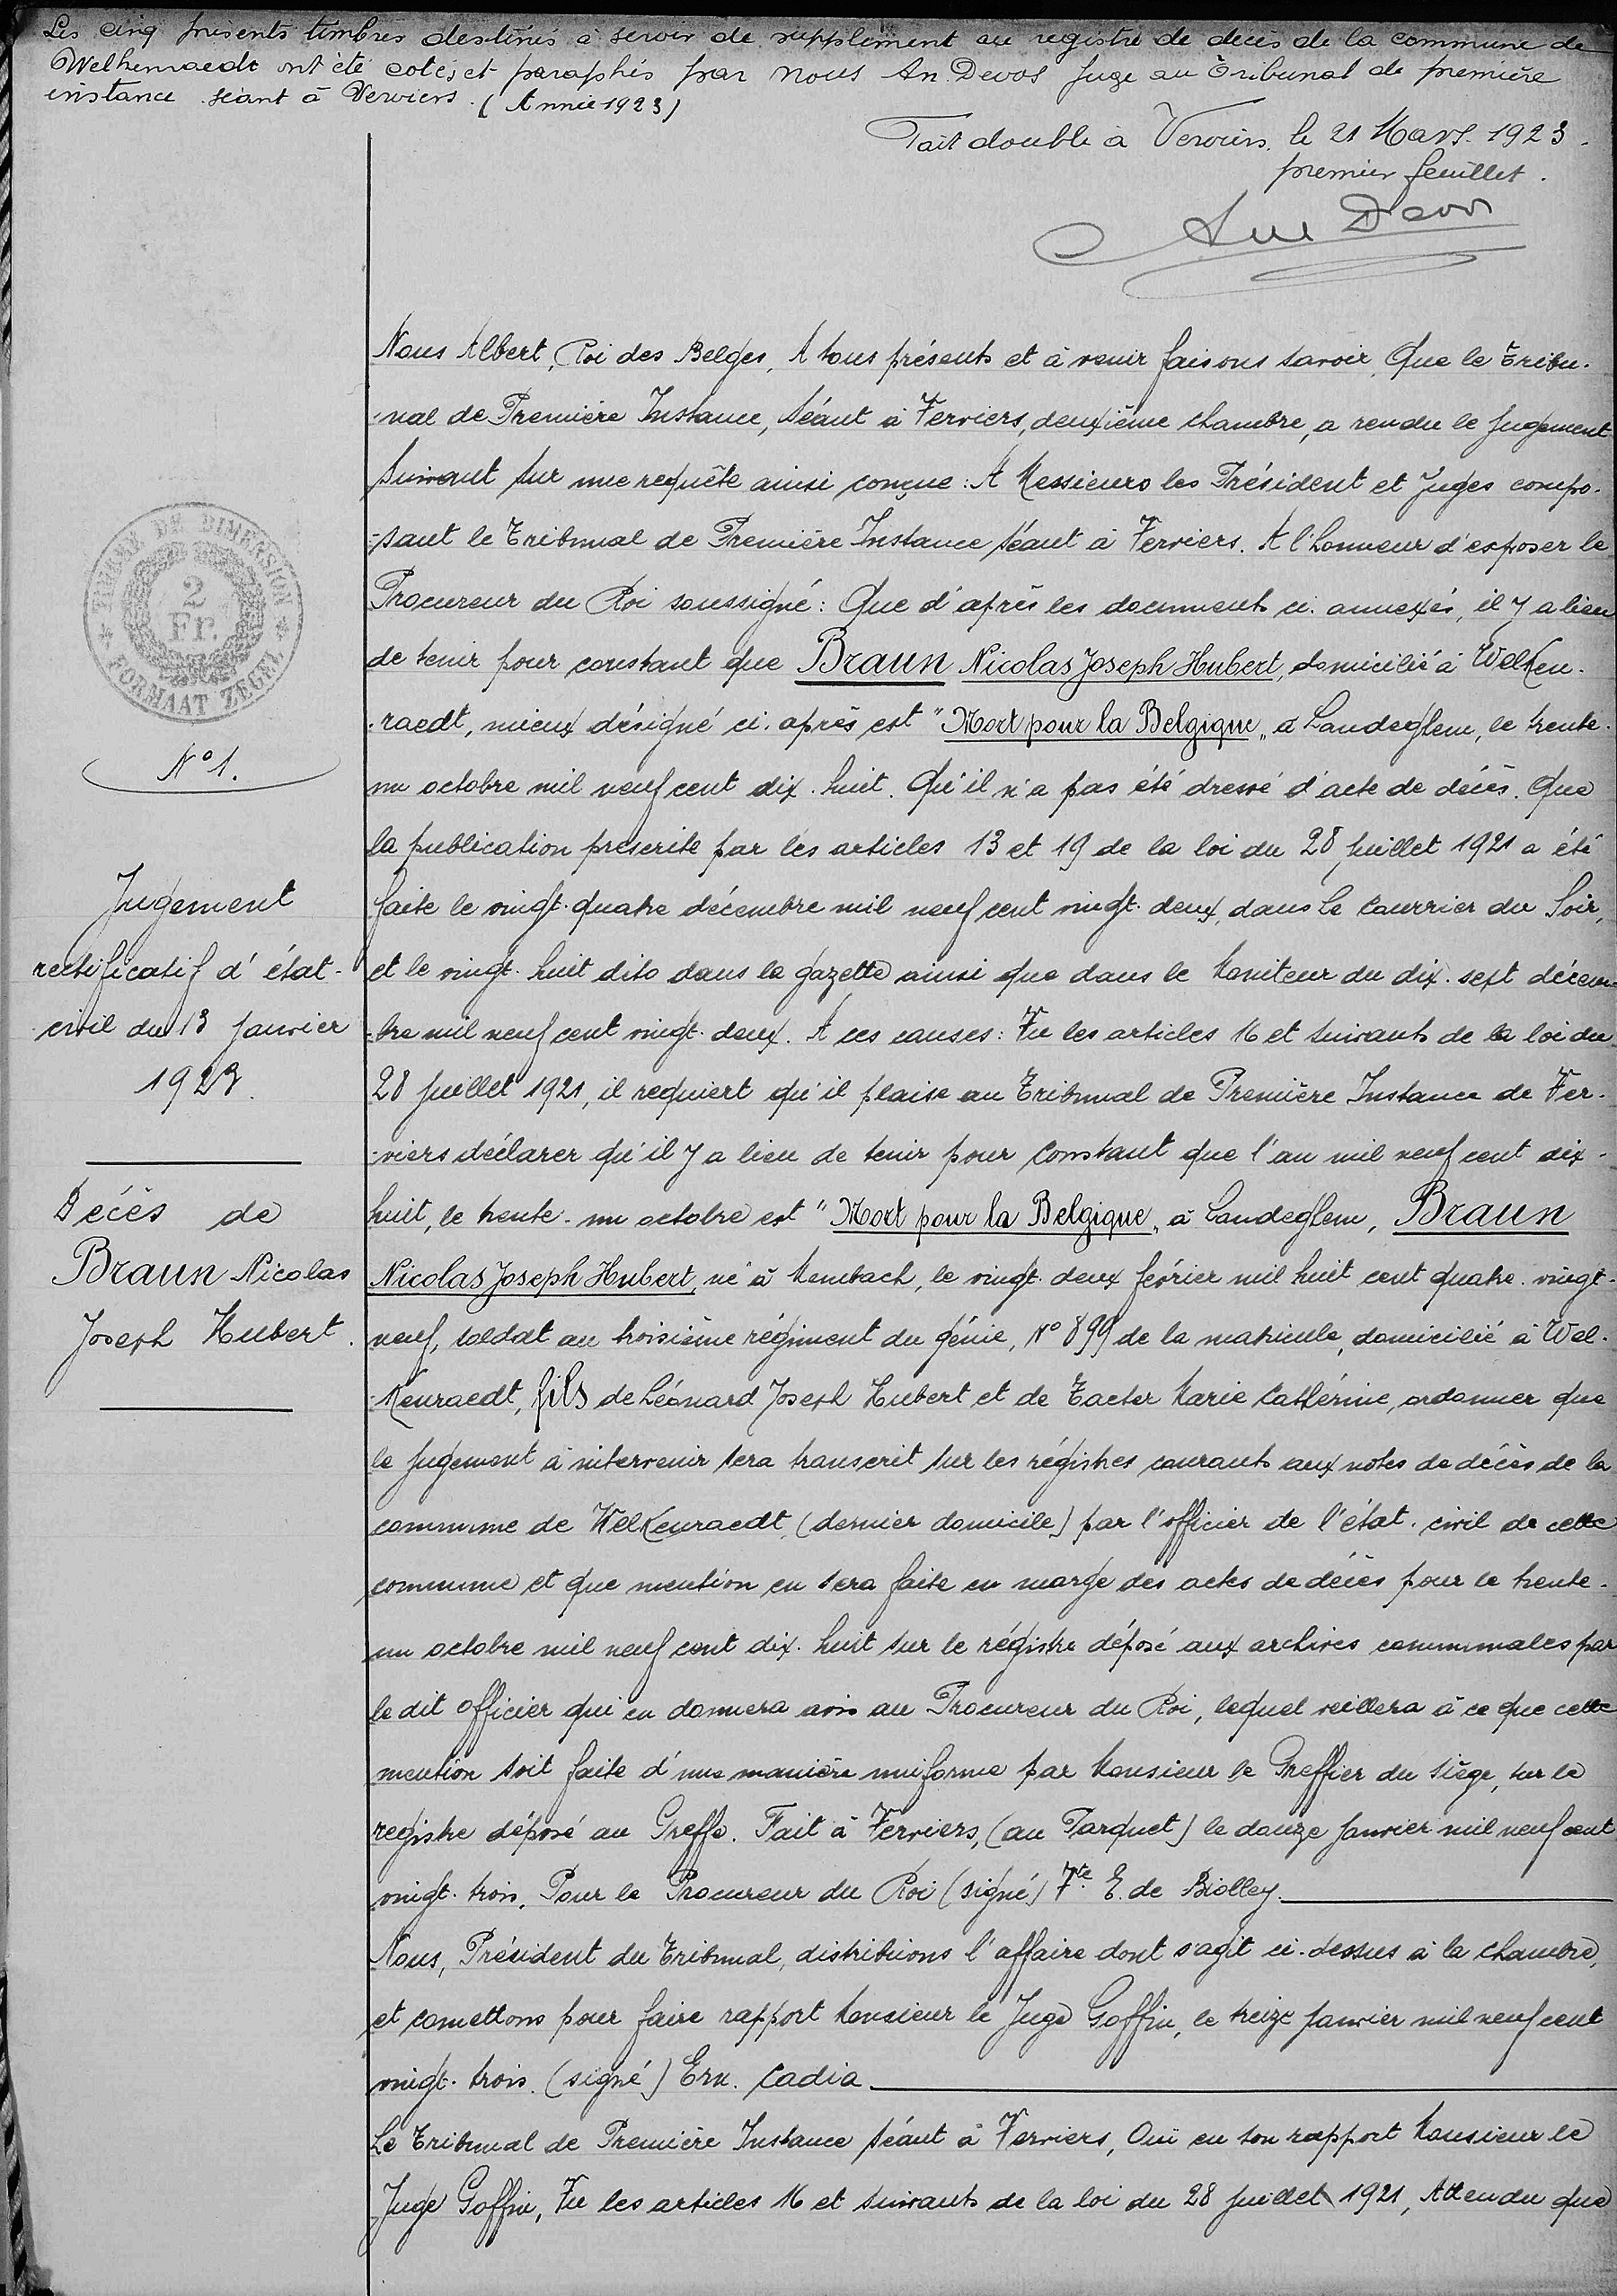 Les cinq présents timbres destinés à servir de supplément au registre de décès de la commune de
Welkenraedt ont été cotés et paraphés par nous An. Devos Juge au Tribunal de première
instance séant à Verviers. (Année 1923)
Fait double à Verviers, le 21 Mars 1923.
premier feuillet.
Devos
Nous Albert, Roi des Belges, A tous présents et à venir faisons savoir, Que le Tribu-
-nal de Première Instance, séant à Verviers, deuxième chambre, a rendu le jugement
suivant sur une requête ainsi conçue: A Messieurs les Président et Juges compo-
-sant le Tribunal de Première Instance séant à Verviers. A l'honneur d'exposer le
Procureur du Roi soussigné: Que d'après les documents ci-annexés, il y a lieu
de tenir pour constant que Braun Nicolas Joseph Hubert, domicilié à Welken-
-raedt, mieux désigné ci-après est "Mort pour la Belgique" à Landeghem, le trente-
un octobre mil neuf cent dix-huit. Qu'il n'a pas été dressé d'acte de décès. Que
la publication prescrite par les articles 13 et 19 de la loi du 28 juillet 1921 a été
faite le vingt-quatre décembre mil neuf cent vingt-deux, dans Le Courrier du Soir,
et le vingt-huit dito dans la gazette ainsi que dans le Moniteur du dix-sept décem-
-bre mil neuf cent vingt-deux. A ces causes: Vu les articles 16 et suivants de la loi du
28 juillet 1921, il requiert qu'il plaise au Tribunal de Première Instance de Ver-
-viers déclarer qu'il y a lieu de tenir pour constant que l'an mil neuf cent dix-
huit, le trente-un octobre est "Mort pour la Belgique" à Landeghem, Braun
Nicolas Joseph Hubert, né à Membach, le vingt-deux février mil huit cent quatre-vingt-
neuf, soldat au troisième régiment du génie, N° 899 de la matricule, domicilié à Wel-
-kenraedt, fils de Léonard Joseph Hubert et de Taeter Marie Cathérine, ordonner que
le jugement à intervenir sera transcrit sur les régistres courants aux notes de décès de la
commune de Welkenraedt (dernier domicile) par l'officier de l'état-civil de cette
commune et que mention en sera faite en marge des actes de décès pour le trente-
un octobre mil neuf cent dix-huit sur le régistre déposé aux archives communales par
le dit officier qui en donnera avis au Procureur du Roi, lequel veillera à ce que cette
mention soit faite d'une manière uniforme par Monsieur le Greffier du siège, sur le
registre déposé au Greffe. Fait à Verviers, (au Parquet) le douze janvier mil neuf cent
vingt-trois. Pour le Procureur du Roi (signé) Vte E. de Biolley.
Nous, Président du Tribunal, distribuons l'affaire dont s'agit ci-dessus à la chambre,
et comettons pour faire rapport Monsieur le Juge Goffin, le treize janvier mil neuf cent
vingt-trois. (signé) Ern. Cadia
Le Tribunal de Première Instance séant à Verviers, Ouï en son rapport Monsieur le
Juge Goffin, Vu les articles 16 et suivants de la loi du 28 juillet 1921, Attendu que
TIMBRE DE DIMENSION
2
Fr.
FORMAAT ZEGEL
N° 1.
Jugement
rectificatif d'état-
civil du 13 janvier
1923.
Décès de
Braun Nicolas
Joseph Hubert.